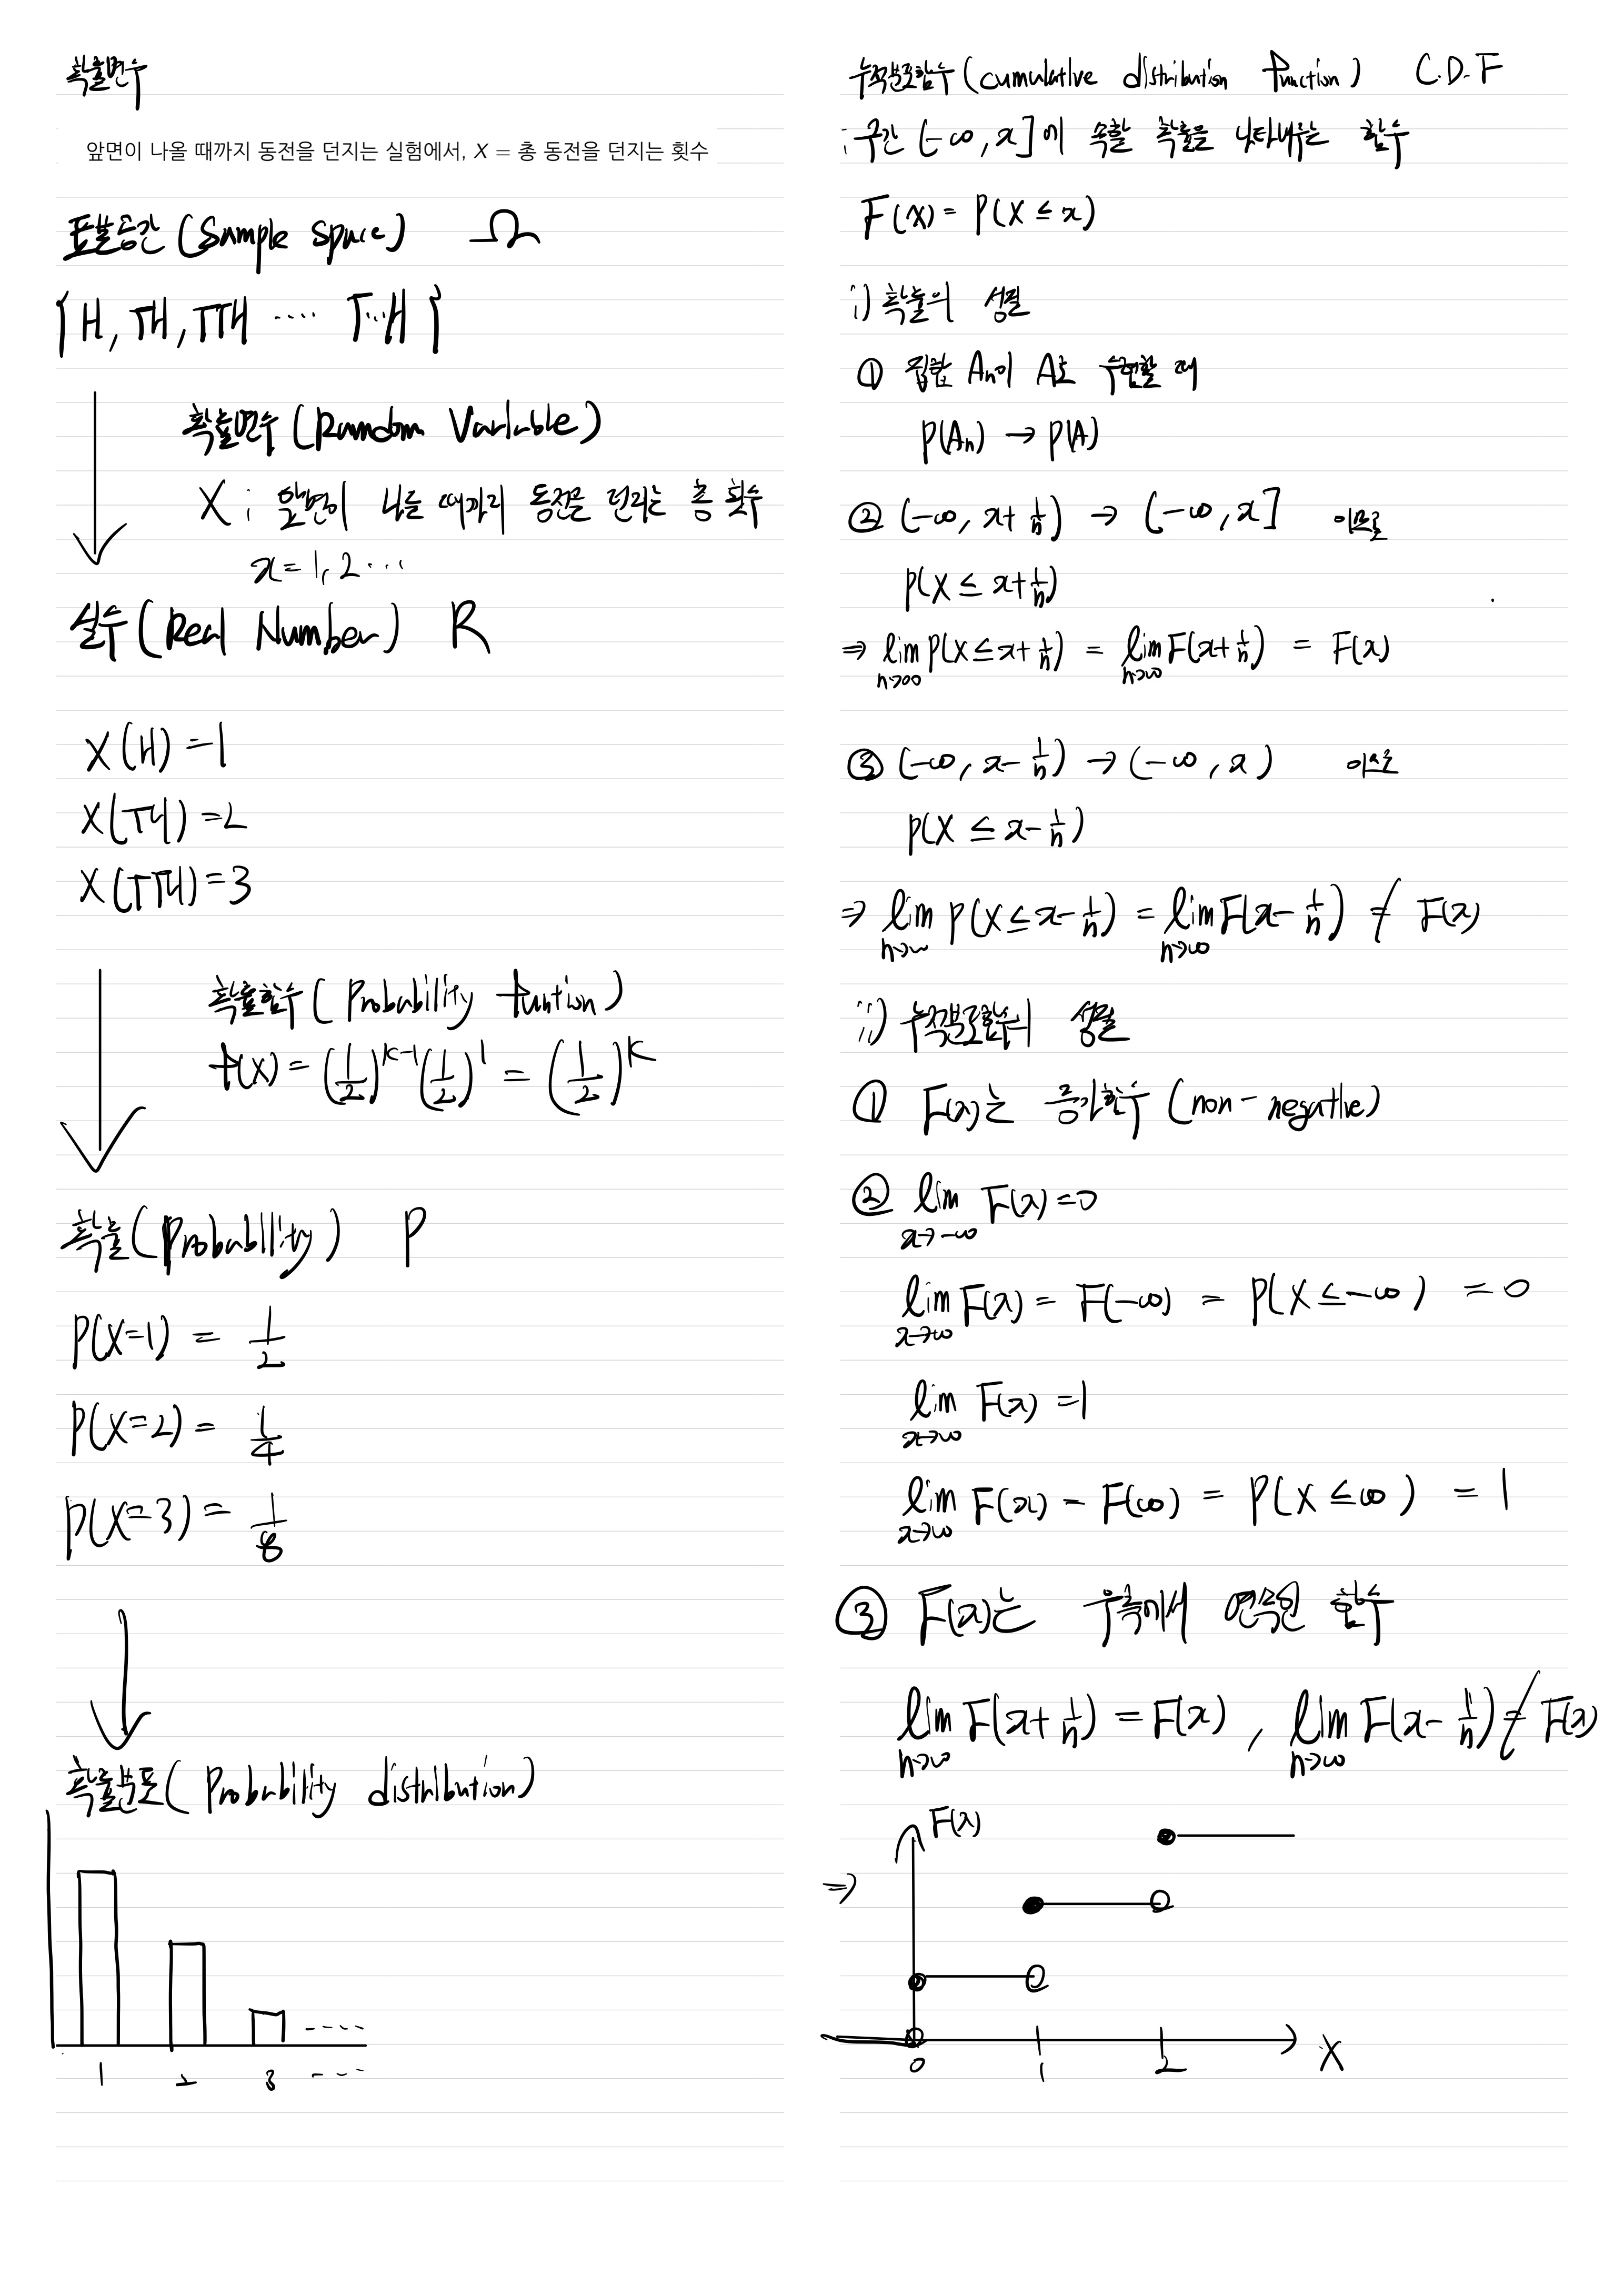 확률변수
앞면이 나올 때까지 동전을 던지는 실험에서, X = 총 동전을 던지는 횟수
표본공간 (Sample space) Ω
{H, TH, TTH ···· T···H}
확률변수 (Random Variable)
X : 앞면이 나올 때까지 동전을 던지는 총 횟수
x = 1, 2 ···
실수 (Real Number) R
X(H) = 1
X(TH) = 2
X(TTH) = 3
확률함수 (Probability funtion)
f(x) = (1/2)^{k-1} (1/2)^1 = (1/2)^k
확률 (Probability) P
P(X=1) = 1/2
P(X=2) = 1/4
P(X=3) = 1/8
확률분포 (Probability distribution)
1 2 3 ····
누적분포함수 (cumulative distribution function) C.D.F
: 구간 (-∞, x]에 속할 확률을 나타내주는 함수
F(x) = P(X ≤ x)
i) 확률의 성질
① 집합 An이 A로 수렴할 때
P(An) → P(A)
② (-∞, x+1/n) → (-∞, x] 이므로
P(X ≤ x+1/n)
⇒ lim n→∞ P(X ≤ x+1/n) = lim n→∞ F(x+1/n) = F(x)
③ (-∞, x-1/n) → (-∞, x) 이므로
P(X ≤ x-1/n)
⇒ lim n→∞ P(X ≤ x-1/n) = lim n→∞ F(x-1/n) ≠ F(x)
ii) 누적분포함수의 성질
① F(x)는 증가함수 (non-negative)
② lim x→-∞ F(x) = 0
lim x→∞ F(x) = F(-∞) = P(X ≤ -∞) = 0
lim x→∞ F(x) = 1
lim x→∞ F(x) = F(∞) = P(X ≤ ∞) = 1
③ F(x)는 우측에서 연속인 함수
lim n→∞ F(x+1/n) = F(x), lim n→∞ F(x-1/n) ≠ F(x)
F(x)
⇒
0 1 2 X